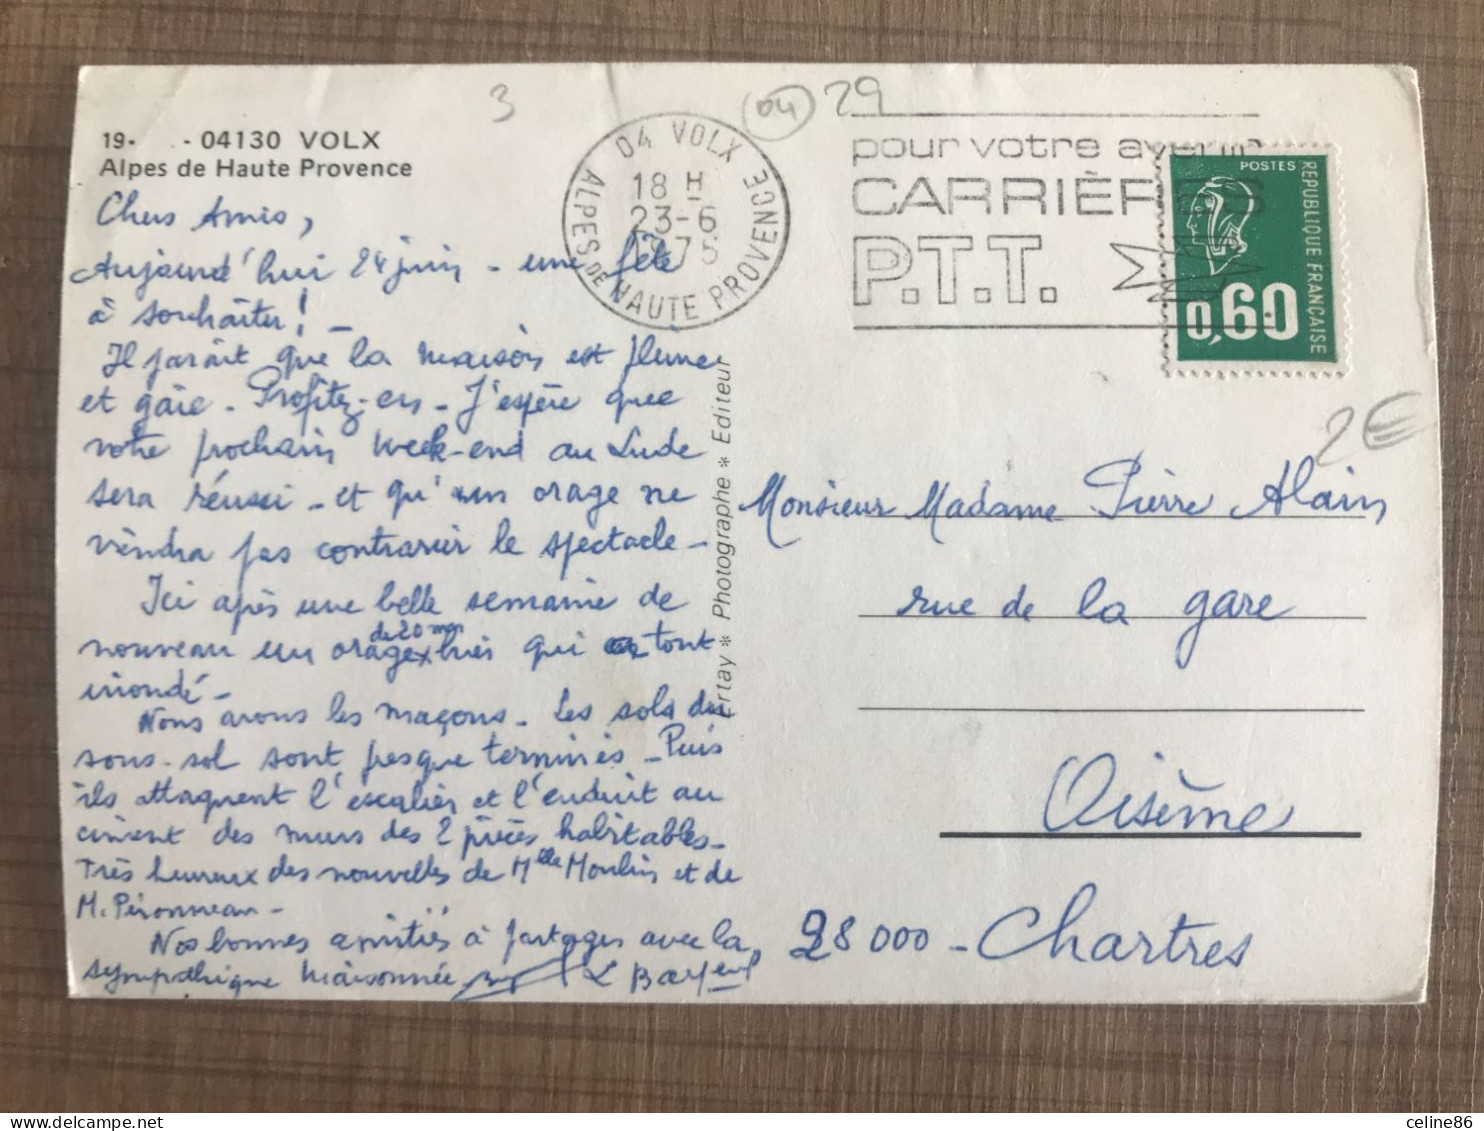 3
04
29
19- . - 04130 VOLX
Alpes de Haute Provence
04 VOLX
18 H
23-6
1975
ALPES DE HAUTE PROVENCE
pour votre avenir
CARRIÈRES
P.T.T.
POSTES
REPUBLIQUE FRANÇAISE
0,60
2€
Chers Amis,
Aujourd'hui 24 juin - une fête
à souhaiter! -
Il paraît que la maison est pleine
et gaie - Profitez-en - J'espère que
votre prochain week-end au Lude
sera réussi - et qu'un orage ne
viendra pas contrarier le spectacle -
Ici après une belle semaine de
de 20 mm
nouveau un orage x hier qui a tout
inondé -
Nous avons les maçons - Les sols du
sous-sol sont presque terminés - Puis
ils attaquent l'escalier et l'enduit au
ciment des murs des 2 pièces habitables -
Très heureux des nouvelles de Mlle Moulin et de
M. Péronneau -
Nos bonnes amitiés à partager avec la
sympathique maisonnée
Ertay * Photographe * Editeur
Monsieur Madame Pierre Alain
rue de la gare
Oisème
28000 - Chartres
celine86